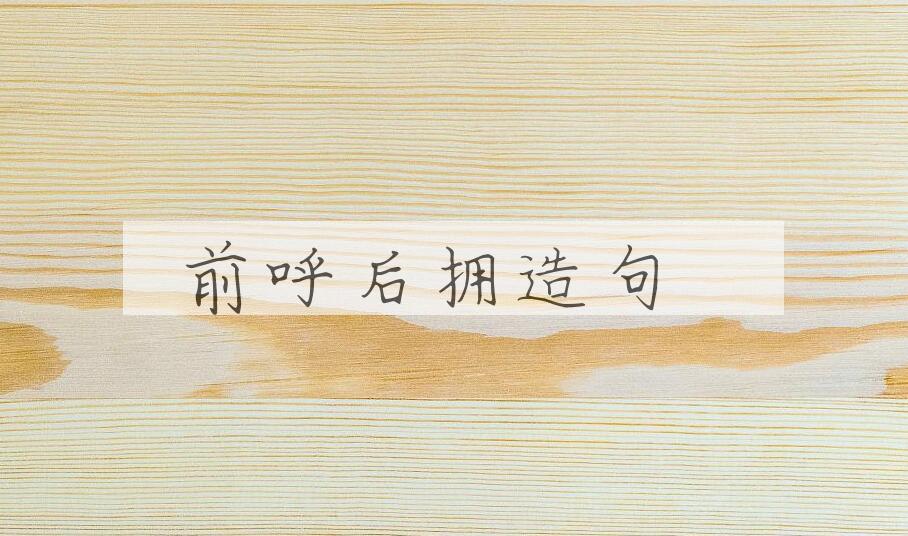 前呼后拥造句